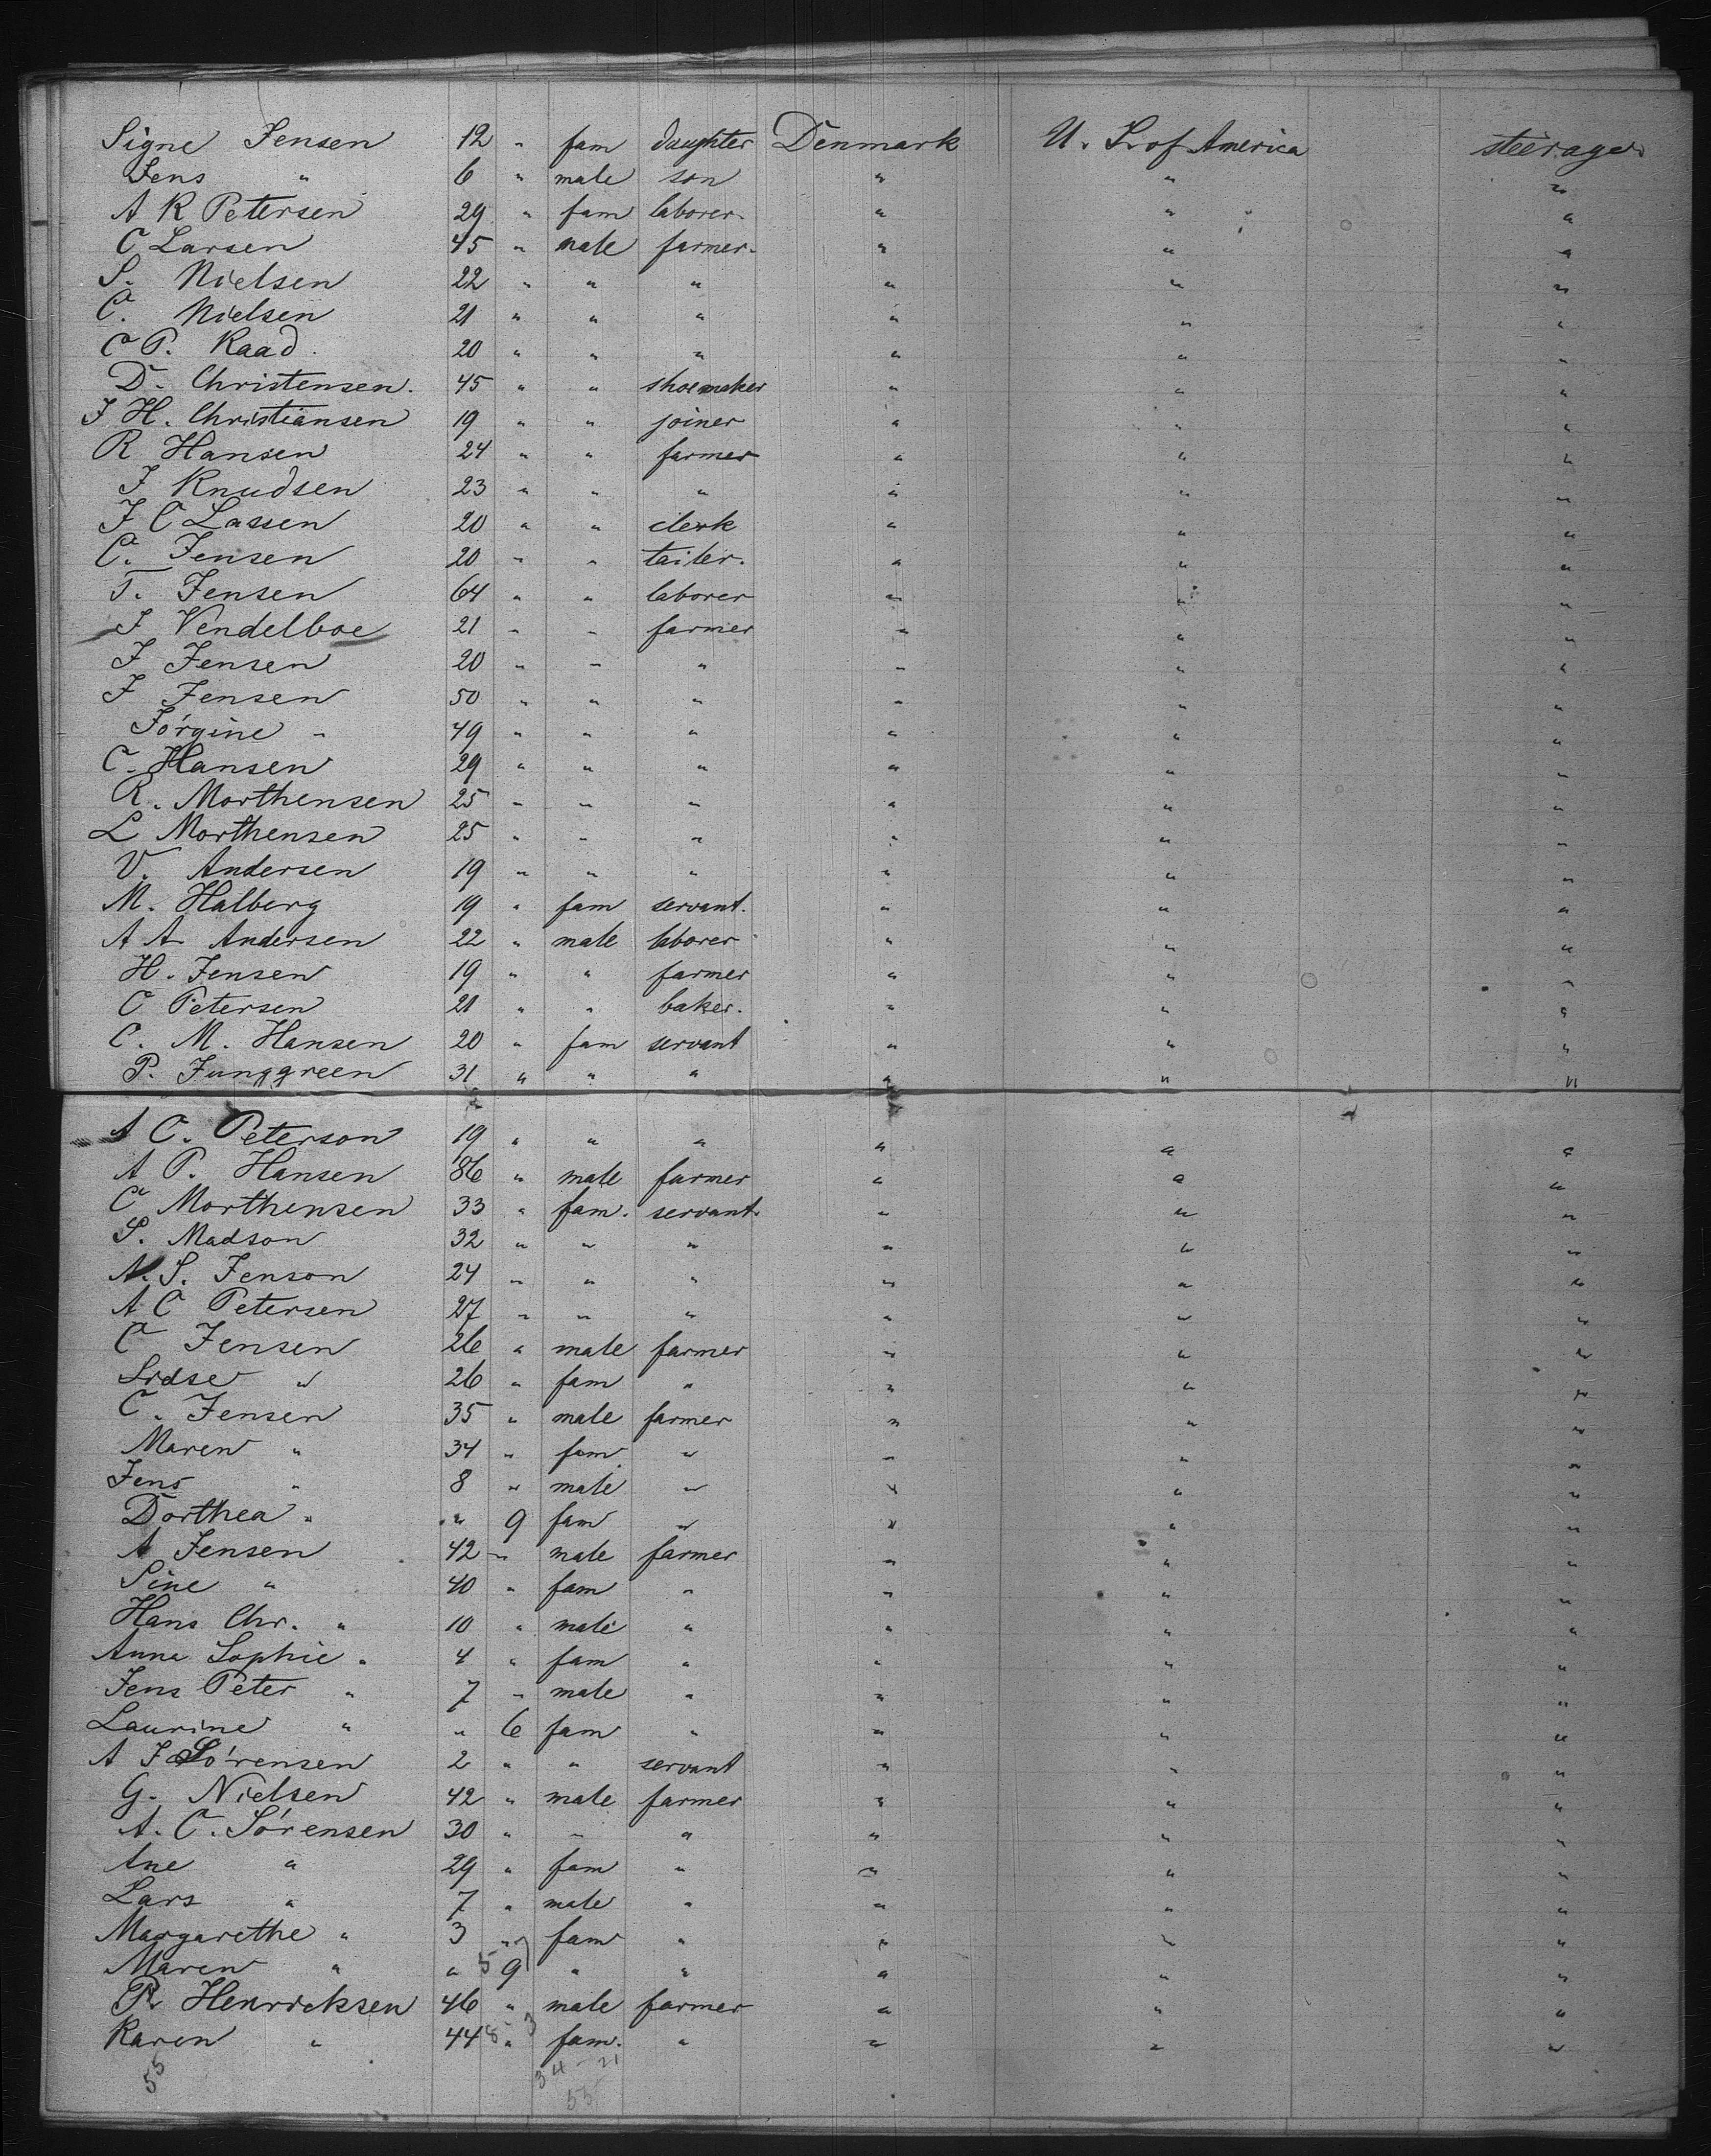 Signe Jensen 12 " fam daughter Denmark U. S. of America steerage
Jens " 6 " male son " " "
A K Petersen 29 " fam laborer " " "
C Larsen 45 " male farmer " " "
S. Nielsen 22 " " " " " "
C. Nielsen 21 " " " " " "
C P. Kaad. 20 " " " " " "
D. Christensen. 45 " " shoemaker " " "
J H. Christiansen 19 " " joiner " " "
R Hansen 24 " " farmer " " "
J Knudsen 23 " " " " " "
J C Lassen 20 " " clerk " " "
C. Jensen 20 " " tailer. " " "
T. Jensen 64 " " laborer " " "
J Vendelboe 21 " " farmer " " "
J Jensen 20 " " " " " "
J Jensen 50 " " " " " "
Jórgine " 49 " " " " " "
C. Hansen 29 " " " " " "
R. Morthensen 25 " " " " " "
L Morthensen 25 " " " " " "
V. Andersen 19 " " " " " "
M. Halberg 19 " fam servant. " " "
A A Andersen 22 " male laborer " " "
H. Jensen 19 " " farmer " " "
C Petersen 21 " " baker. " " "
C. M. Hansen 20 " fam servant " " "
P. Junggreen 31 " " " " " "
A C. Peterson 19 " " " " " "
A P. Hansen 86 " male farmer " " "
C Morthensen 33 " fam. servant. " " "
S. Madson 32 " " " " " "
A. S. Jenson 24 " " " " " "
A C Petersen 27 " " " " " "
C Jensen 26 " male farmer " " "
Sidse " 26 " fam " " " "
C. Jensen 35 " male farmer " " "
Maren " 34 " fam " " " "
Jens " 8 " male " " " "
Dorthea " " 9 fam " " " "
A Jensen 42 " male farmer " " "
Sine " 40 " fam " " " "
Hans Chr. " 10 " male " " " "
Anna Sophie " 4 " fam " " " "
Jens Peter " 7 " male " " " "
Laurine " " 6 fam " " " "
A J Sórensen 2 " " servant " " "
G. Nielsen 42 " male farmer " " "
A. C. Sórensen 30 " " " " " "
Ane " 29 " fam " " " "
Lars " 7 " male " " " "
Margarethe " 3 " fam " " " "
Maren " " 5 9 " " " " "
P. Henricksen 46 " male farmer " " "
Karen " 44 8 " 3 fam. " " " "
55 34 21
55